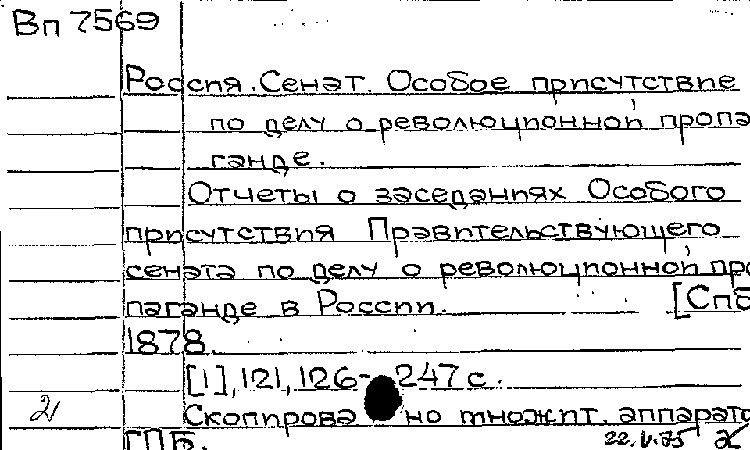 Вп 7569
Россия. Сенат. Особое присутствие
по делу о революционной пропа
ганде.
Отчеты о заседаниях Особого
присутствия Правительствующего
сената по делу о революционной про
паганде в России. [Спб
1878.
[1], 121, 126-247 с.
Скопирова но множит. аппарато
21 ГПБ. 22.V.75